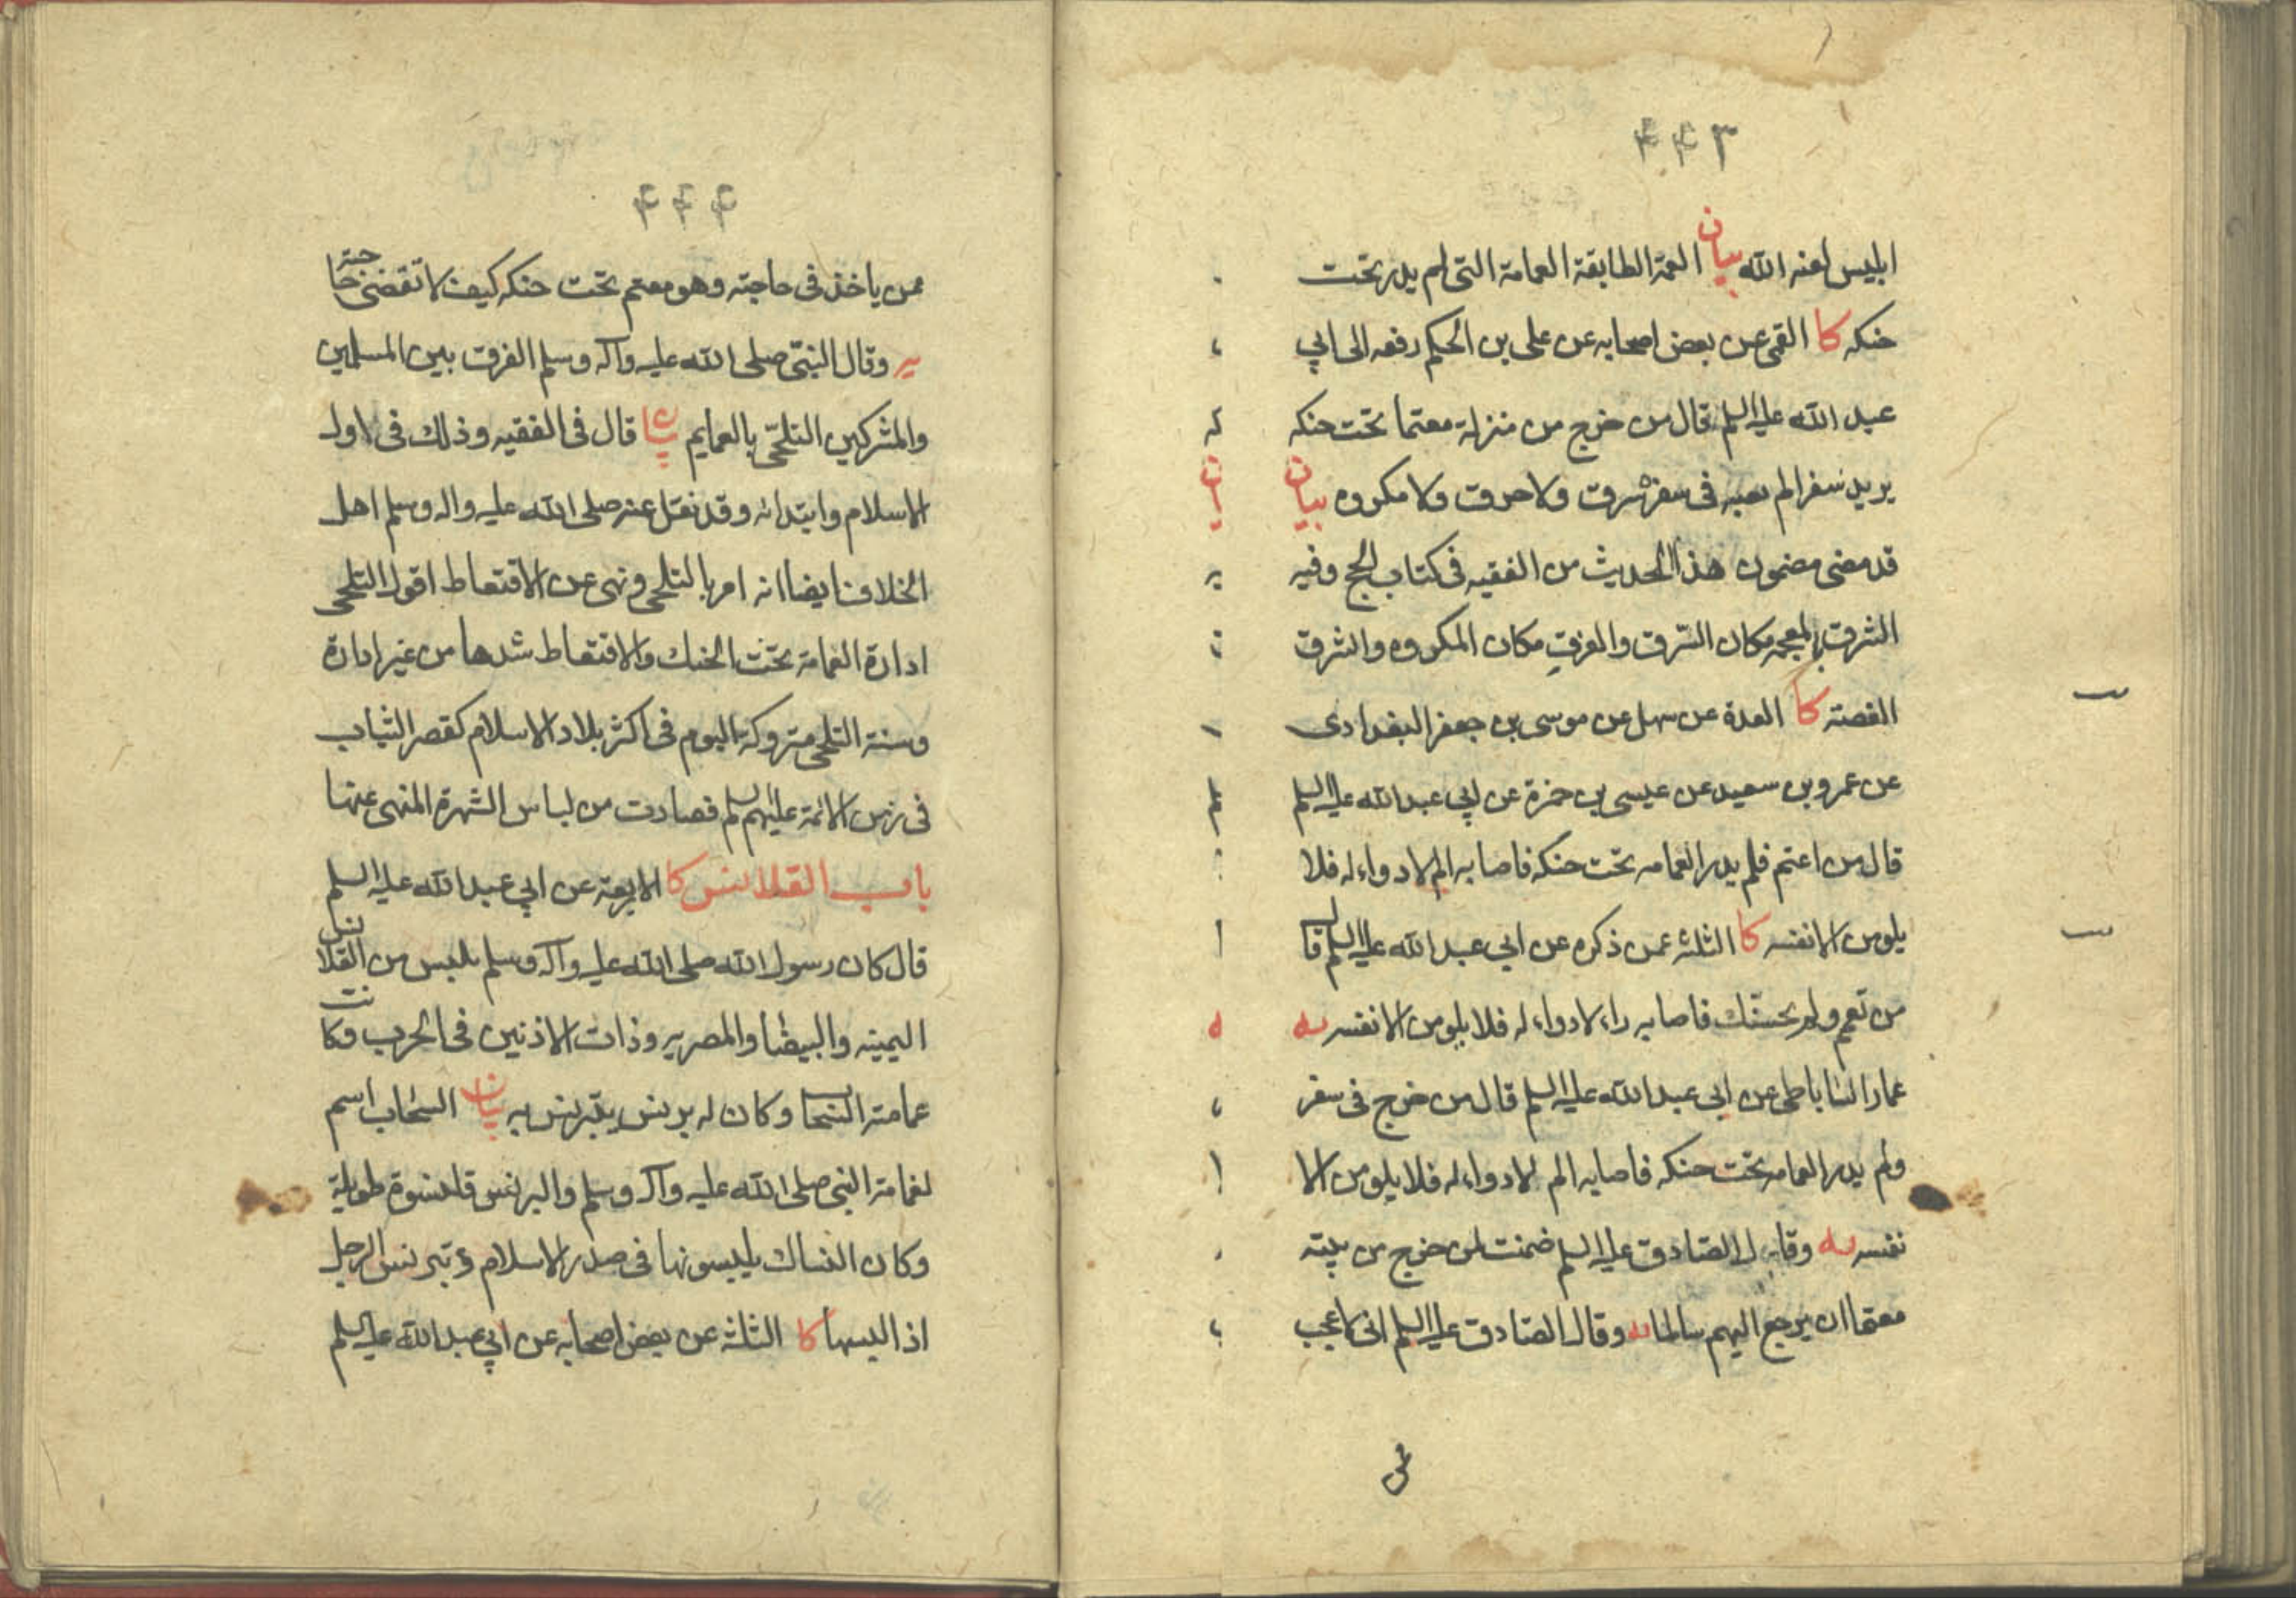 ۴۴۳
ابليس لعنه الله بيان العمة الطابقة العمامة التى لم يدر تحت
حنكه كا القمى عن بعض اصحابه عن على بن الحكم رفعه الى ابي
عبد الله عليه السلم قال من خرج من منزله معتما تحت حنكه
يريد سفرا لم يصبه فى سفره سرق ولا حرق ولا مكروه بيان
قد مضى مضمون هذا الحديث من الفقيه فى كتاب الحج وفيه
الشرق بالمعجمه مكان السّرق والغرق مكان المكروه والشرق
الغصته كا العدة عن سهل عن موسى بن جعفر البغدادى
عن عمرو بن سعيد عن عيسى بن حمزة عن ابي عبد الله عليه السلم
قال من اعتم فلم يدر العمامه تحت حنكه فاصابه الم لا دواء له فلا
يلومن الا نفسه كا الثلثه عمن ذكره عن ابي عبد الله عليه السلم قال
من تعمم ولم يحتنك فاصابه داء لا دواء له فلا يلومن الا نفسه يه
عمار الساباطى عن ابى عبد الله عليه السلم قال من خرج فى سفر
ولم يدر العمامه تحت حنكه فاصابه الم لا دواء له فلا يلومن الا
نفسه يه وقال الصّادق عليه السلم ضمنت لمن خرج من بيته
معتما ان يرجع اليهم سالما يه وقال الصّادق عليه السلم انى لاعجب
۴۴۴
ممن ياخذ فى حاجته وهو معتم تحت حنكه كيف لا تقضى حاجته
يه وقال النبىّ صلى الله عليه وآله وسلم الفرق بين المسلمين
والمشركين التلحّى بالعمايم بيان قال فى الفقيه وذلك فى اول
الاسلام وابتدائه وقد نقل عنه صلى الله عليه واله وسلم اهل
الخلاف ايضا انه امر بالتلحى ونهى عن الاقتعاط اقول التلحى
ادارة العمامة تحت الحنك والاقتعاط شدها من غير ادارة
وسنة التلحى متروكة اليوم فى اكثر بلاد الاسلام كقصر الثياب
فى زمن الائمة عليهم السلم فصارت من لباس الشهرة المنهى عنها
باب القلانس كا الاربعة عن ابي عبد الله عليه السلم
قال كان رسول الله صلى الله عليه وآله وسلم يلبس من القلانس
اليمنيه والبيضا والمصريه وذات الاذنين فى الحرب وكانت
عمامته السّحاب وكان له برنس يتبرنس به بيان السّحاب اسم
لعمامة النبى صلى الله عليه وآله وسلم والبرنس قلنسوة طويلة
وكان النساك يلبسونها فى صدر الاسلام وتبرنس الرجل
اذا لبسها كا الثلثة عن بعض اصحابه عن ابي عبد الله عليه السلم